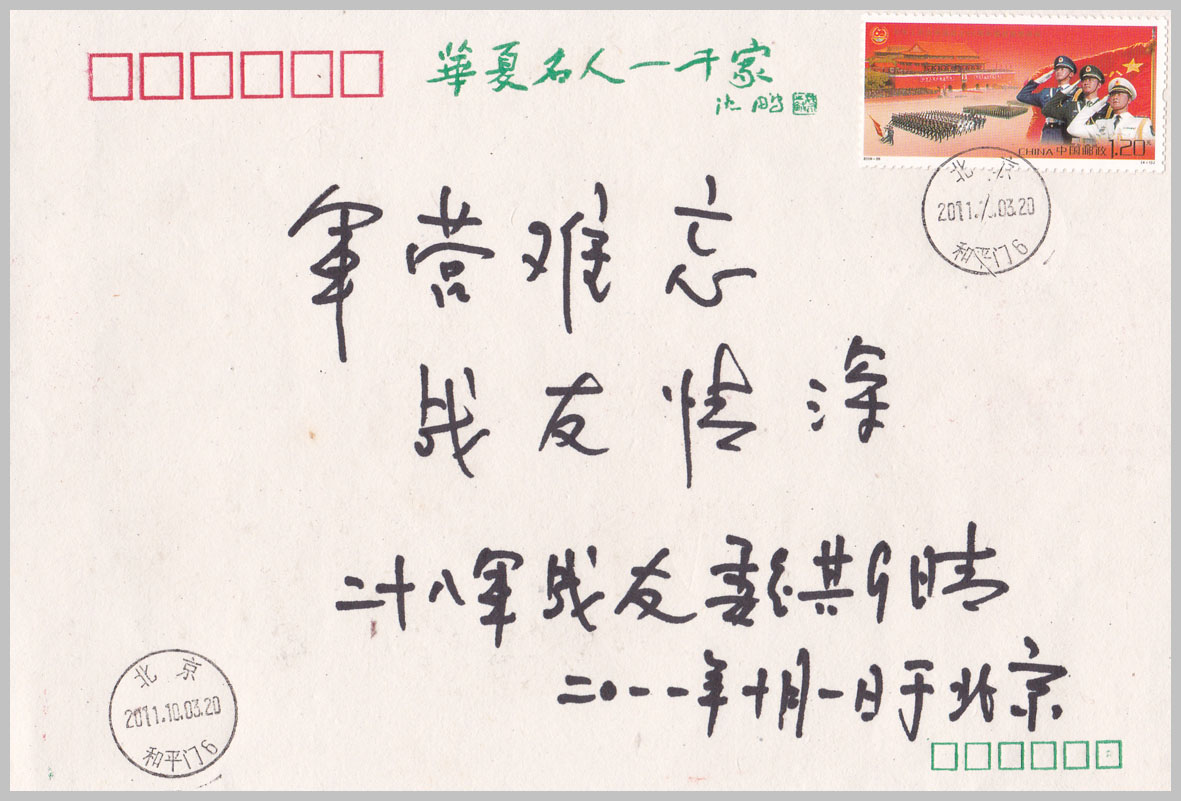 華夏名人一千家
沈鹏
CHINA 中国邮政 1.20元
北京
2011. .03.20
和平门6
军营难忘
战友情深
二十八军战友
二〇一一年十月一日于北京
北京
2011.10.03.20
和平门6